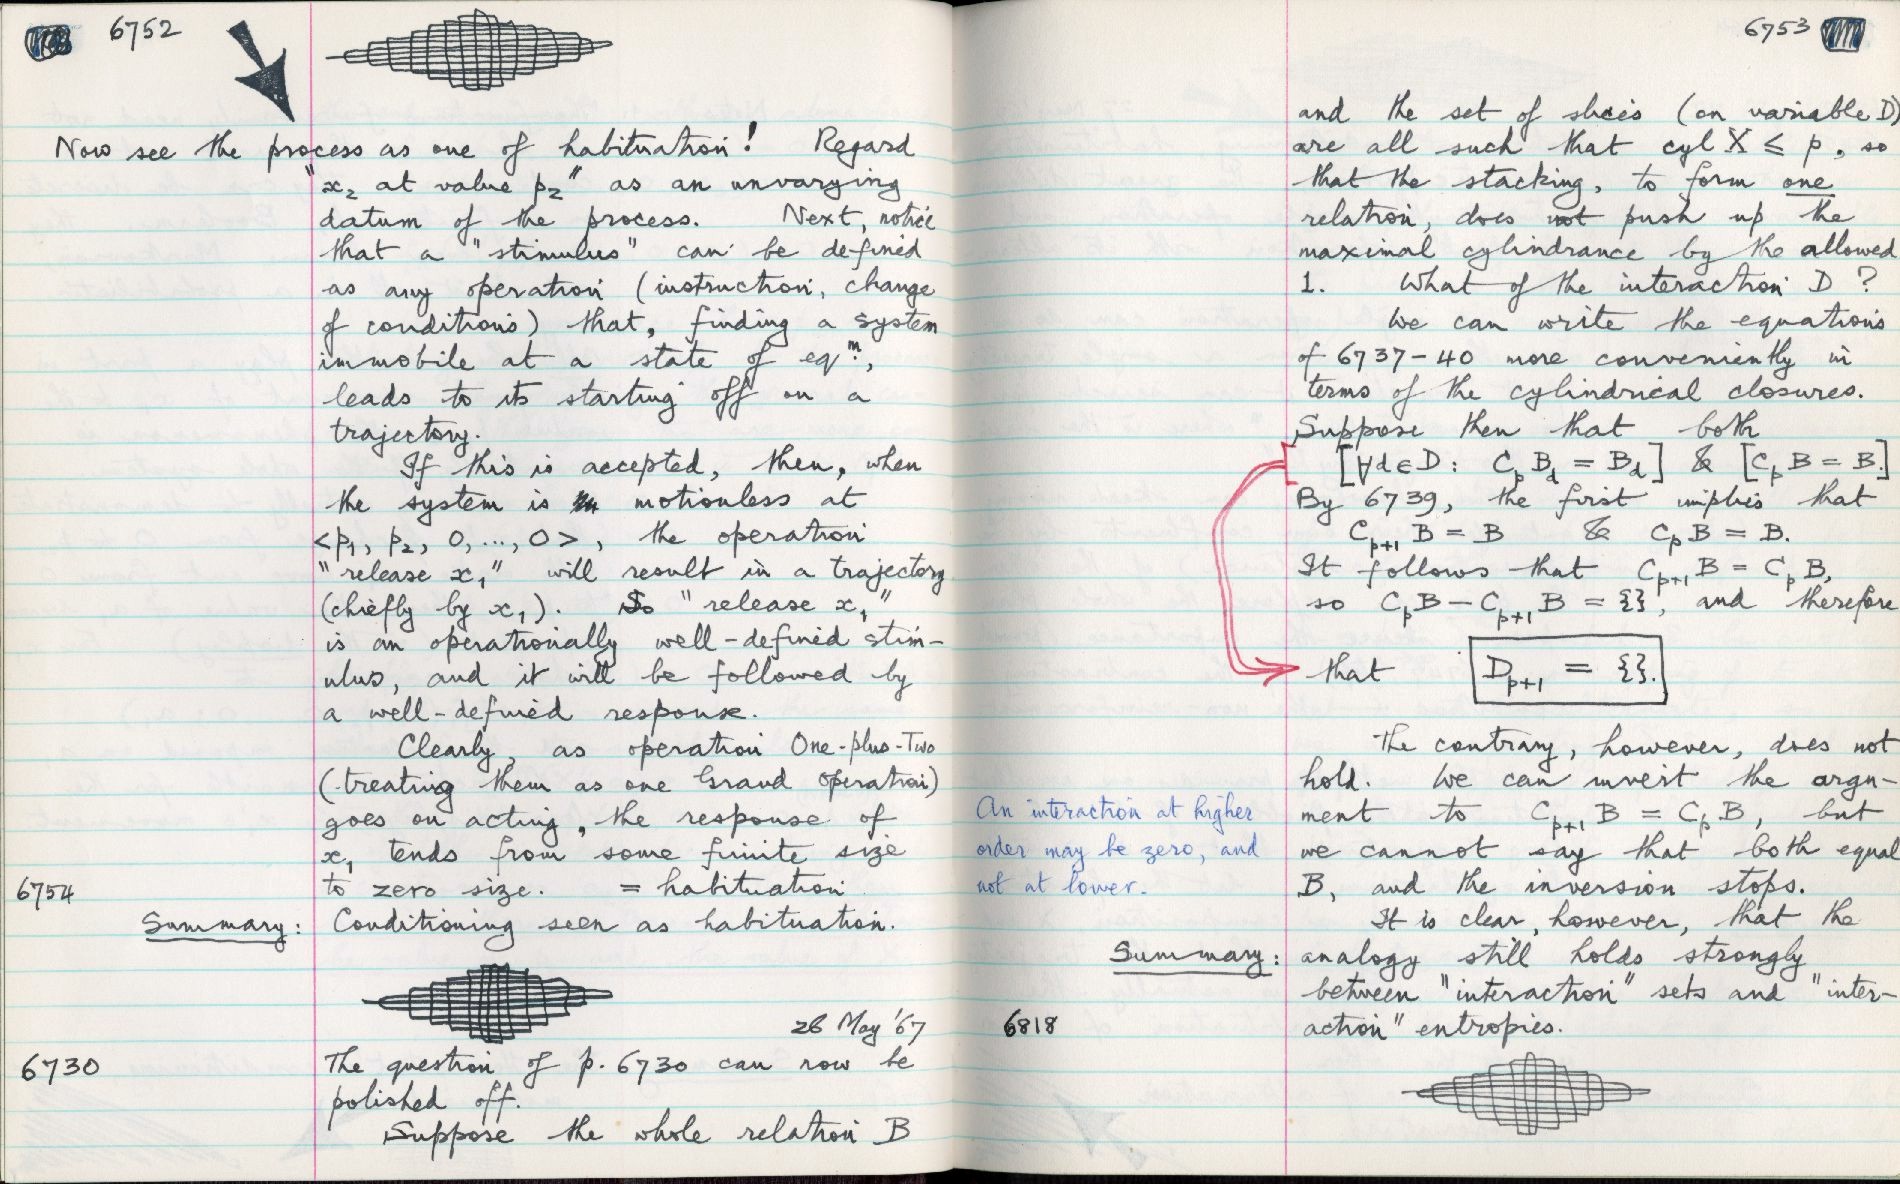 6752
Now see the process as one of habituation! Regard
"x₂ at value p₂" as an unvarying
datum of the process. Next, notice
that a "stimulus" can be defined
as any operation (instruction, change
of conditions) that, finding a system
immobile at a state of eqᵐ.,
leads to its starting off on a
trajectory.
If this is accepted, then, when
the system is motionless at
<p₁, p₂, 0, ..., 0>, the operation
"release x₁" will result in a trajectory
(chiefly by x₁). So "release x₁"
is an operationally well-defined stim-
ulus, and it will be followed by
a well-defined response.
Clearly, as operation One-plus-Two
(treating them as one Grand Operation)
goes on acting, the response of
x₁ tends from some finite size
to zero size. = habituation
6754
Summary: Conditioning seen as habituation.
26 May '67
6730 The question of p. 6730 can now be
polished off.
Suppose the whole relation B
6753
and the set of slices (on variable D)
are all such that cyl X ≤ p, so
that the stacking, to form one
relation, does not push up the
maximal cylindrance by the allowed
1. What of the interaction D?
We can write the equations
of 6737-40 more conveniently in
terms of the cylindrical closures.
Suppose then that both
[∀d∈D: CₚB_d = B_d] & [CₚB = B.]
By 6739, the first implies that
Cₚ₊₁B = B & CₚB = B.
It follows that Cₚ₊₁B = CₚB,
so CₚB - Cₚ₊₁B = {}, and therefore
that Dₚ₊₁ = {}.
The contrary, however, does not
hold. We can invert the argu-
ment to Cₚ₊₁B = CₚB, but
we cannot say that both equal
B, and the inversion stops.
An interaction at higher
order may be zero, and
not at lower.
It is clear, however, that the
Summary: analogy still holds strongly
between "interaction" sets and "inter-
6818 action" entropies.